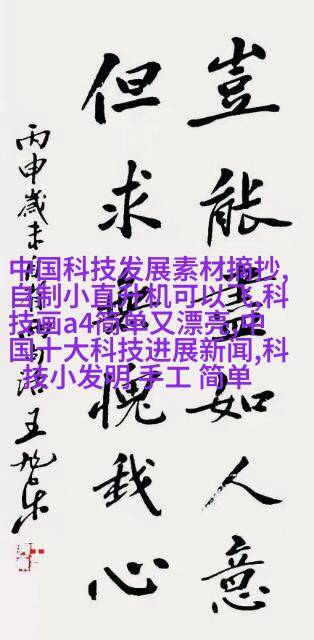 豈能盡如人意
但求無愧我心
丙申歲末
王旭东
中国科技发展素材摘抄,
自制小直升机可以飞,科
技画a4简单又漂亮,中
国十大科技进展新闻,科
技小发明 手工 简单